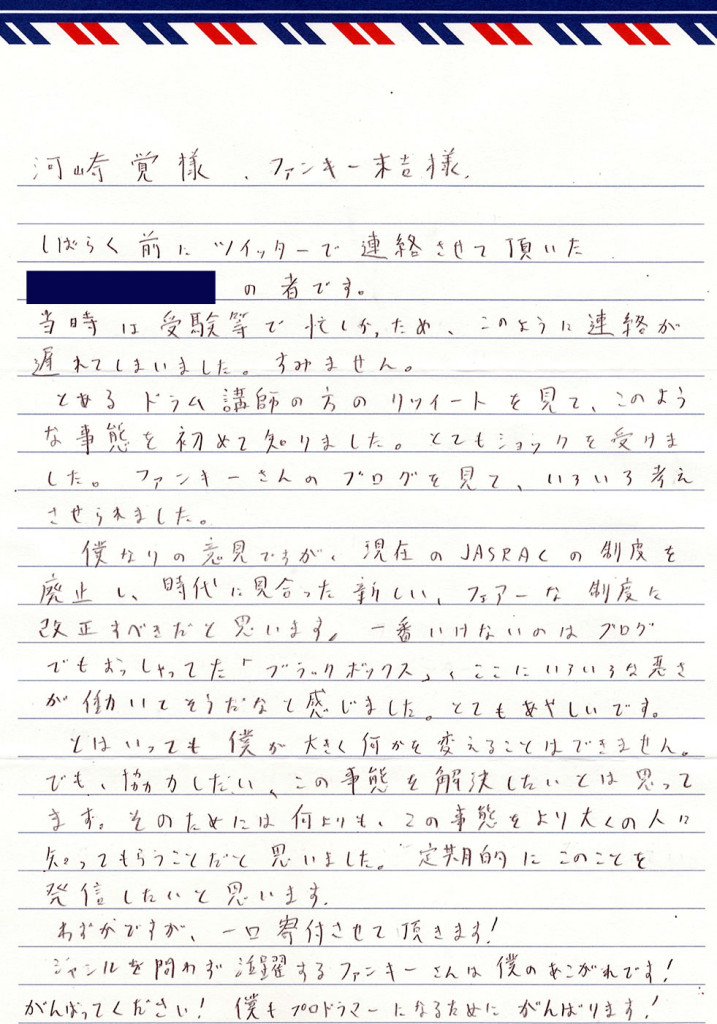 河崎覚様、ファンキー末吉様、
しばらく前にツイッターで連絡させて頂いた
の者です。
当時は受験等で忙しかったため、このように連絡が
遅れてしまいました。すみません。
とあるドラム講師の方のリツイートを見て、このよう
な事態を初めて知りました。とてもショックを受けま
した。ファンキーさんのブログを見て、いろいろ考え
させられました。
僕なりの意見ですが、現在のJASRACの制度を
廃止し、時代に見合った新しい、フェアーな制度に
改正すべきだと思います。一番いけないのはブログ
でもおっしゃってた「ブラックボックス」、ここにいろいろな悪さ
が働いてそうだなと感じました。とてもあやしいです。
とはいっても僕が大きく何かを変えることはできません。
でも、協力したい、この事態を解決したいとは思って
ます。そのためには何よりも、この事態をより多くの人に
知ってもらうことだと思いました。定期的にこのことを
発信したいと思います。
わずかですが、一口寄付させて頂きます!
ジャンルを問わず活躍するファンキーさんは僕のあこがれです!
がんばってください!僕もプロドラマーになるためにがんばります!